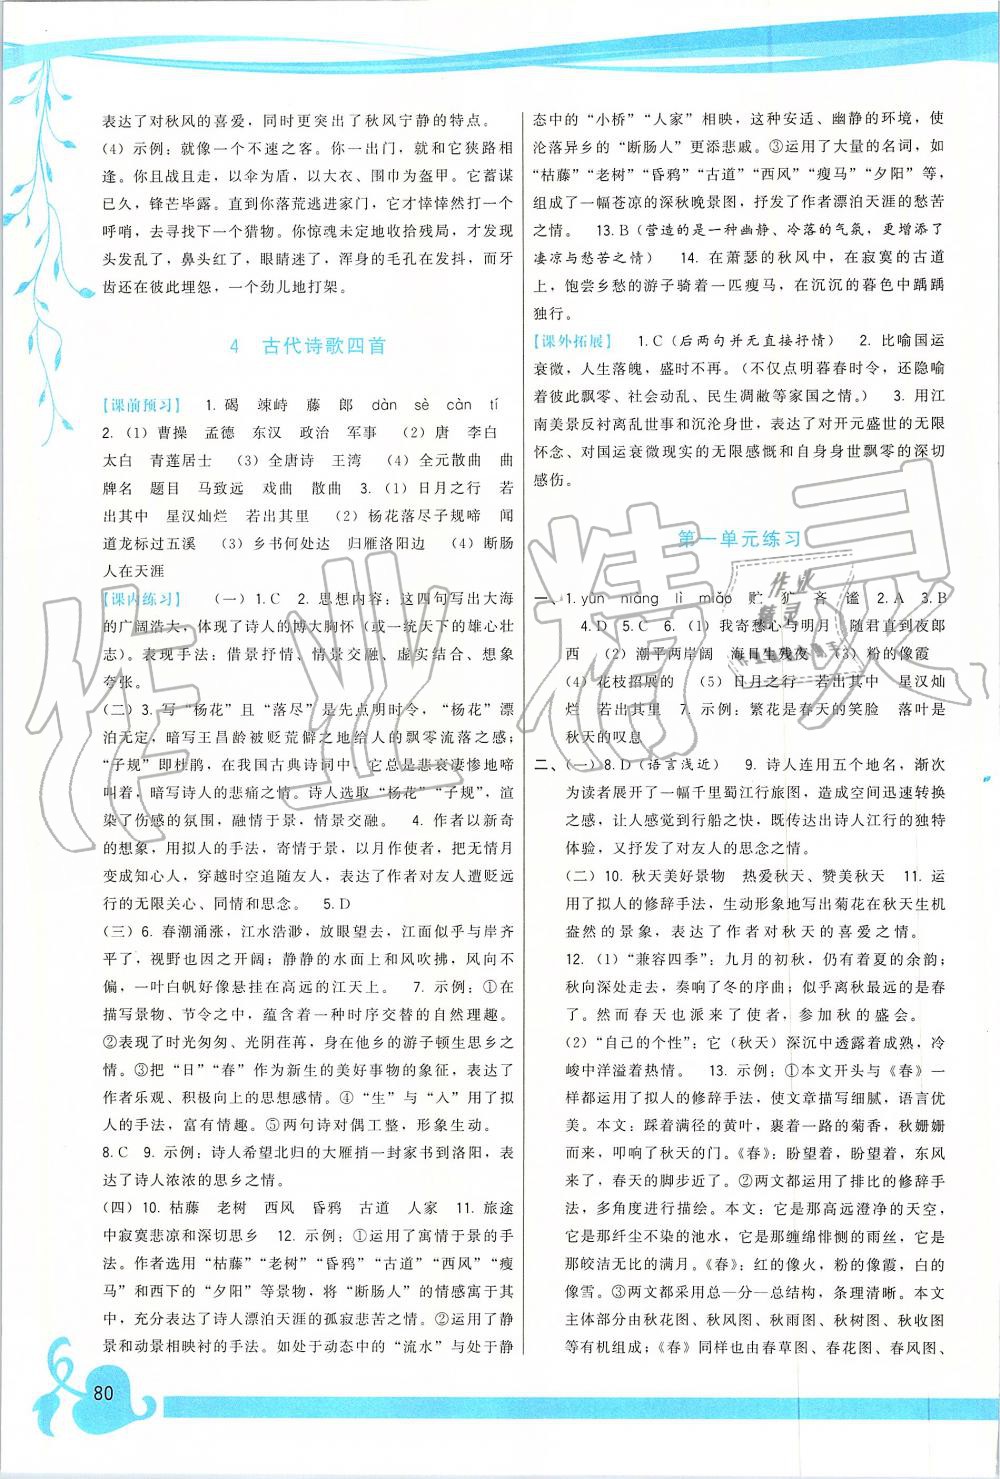 表达了对秋风的喜爱，同时更突出了秋风宁静的特点。
(4) 示例：就像一个不速之客。你一出门，和它狭路相
逢。你且战且走，以伞为盾，以大衣、围巾为盔甲。它蓄谋
已久，锋芒毕露。直到你落荒逃进家门，它才悻悻然打一个
呼哨，去寻下一个猎物。你惊魂未定地收拾残局，才发现
头发乱了，鼻头红了，眼睛迷了，浑身的毛孔在发抖，而牙
齿还在彼此埋怨，一个劲儿地打架。
4 古代诗歌四首
【课前预习】 1. 碣 竦峙 藤 郎 dàn sè càn tí
2. (1) 曹操 孟德 东汉 政治 军事 (2) 唐 李白
太白 青莲居士 (3) 全唐诗 王湾 (4) 全元散曲 曲
牌名 题目 马致远 戏曲 散曲 3. (1) 日月之行 若
出其中 星汉灿烂 若出其里 (2) 杨花落尽子规啼 闻
道龙标过五溪 (3) 乡书何处达 归雁洛阳边 (4) 断肠
人在天涯
【课内练习】 (一) 1.C 2. 思想内容：这四句写出大海
的广阔浩大，体现了诗人的博大胸怀（或一统天下的雄心壮
志）。表现手法：借景抒情、情景交融、虚实结合、想象
夸张。
(二) 3. 写“杨花”且“落尽”是先点明时令，“杨花”漂
泊无定，暗写王昌龄被贬荒僻之地给人的飘零流落之感；
“子规”即杜鹃，在我国古典诗词中，它总是悲哀凄惨地啼
叫着，暗写诗人的悲痛之情。诗人选取“杨花”“子规”，渲
染了伤感的氛围，融情于景，情景交融。 4. 作者以新奇
的想象，用拟人的手法，寄情于景，以月作使者，把无情月
变成知心人，穿越时空追随友人，表达了作者对友人遭贬远
行的无限关心、同情和思念。 5. D
(三) 6. 春潮涌涨，江水浩渺，放眼望去，江面似乎与岸齐
平了，视野也因之开阔；静静的水面上和风吹拂，风向不
偏，一叶白帆好像悬挂在高远的江天上。 7. 示例：①在
描写景物、节令之中，蕴含着一种时序交替的自然理趣。
②表现了时光匆匆、光阴荏苒，身在他乡的游子顿生思乡之
情。③把“日”“春”作为新生的美好事物的象征，表达了
作者乐观、积极向上的思想感情。④“生”与“入”用了拟
人的手法，富有情趣。⑤两句诗对偶工整，形象生动。
8. C 9. 示例：诗人希望北归的大雁捎一封家书到洛阳，表
达了诗人浓浓的思乡之情。
(四) 10. 枯藤 老树 西风 昏鸦 古道 人家 11. 旅途
中寂寞悲凉和深切思乡 12. 示例：①运用了寓情于景的手
法。作者选用“枯藤”“老树”“昏鸦”“古道”“西风”“瘦
马”和西下的“夕阳”等景物，将“断肠人”的情感寓于其
中，充分表达了诗人漂泊天涯的孤寂悲苦之情。②运用了静
景和动景相映衬的手法。如处于动态中的“流水”与处于静
态中的“小桥”“人家”相映，这种安适、幽静的环境，使
沦落异乡的“断肠人”更添悲戚。③运用了大量的名词，如
“枯藤”“老树”“昏鸦”“古道”“西风”“瘦马”“夕阳”等，
组成了一幅苍凉的深秋晚景图，抒发了作者漂泊天涯的愁苦
之情。 13. B（营造的是一种幽静、冷落的气氛，更增添了
凄凉与愁苦之情） 14. 在萧瑟的秋风中，在寂寞的古道
上，饱尝乡愁的游子骑着一匹瘦马，在沉沉的暮色中踽踽
独行。
【课外拓展】 1. C（后两句并无直接抒情） 2. 比喻国运
衰微，人生落魄，盛时不再。（不仅点明暮春时令，还隐喻
着彼此飘零、社会动乱、民生凋敝等家国之情。） 3. 用江
南美景反衬离乱世事和沉沦身世，表达了对开元盛世的无限
怀念、对国运衰微现实的无限感慨和自身身世飘零的深切
感伤。
第一单元练习
一、1. yùn niàng lì mǎo 贮 犷 吝 谧 2. A 3. B
4. D 5. C 6. (1) 我寄愁心与明月 随君直到夜郎
西 (2) 潮平两岸阔 海日生残夜 (3) 粉的像霞
(4) 花枝招展的 (5) 日月之行 若出其中 星汉灿
烂 若出其里 7. 示例：繁花是春天的笑脸 落叶是
秋天的叹息
二、(一) 8. D（语言浅近） 9. 诗人连用五个地名，渐次
为读者展开了一幅千里蜀江行旅图，造成空间迅速转换
之感，让人感觉到行船之快，既传达出诗人江行的独特
体验，又抒发了对友人的思念之情。
(二) 10. 秋天美好景物 热爱秋天、赞美秋天 11. 运
用了拟人的修辞手法，生动形象地写出菊花在秋天生机
盎然的景象，表达了作者对秋天的喜爱之情。
12. (1)“兼容四季”：九月的初秋，仍有着夏的余韵；
秋向深处走去，再见了冬的序曲；似乎离来年的是春
了。然而春天也派了使者，参加秋的盛会。
(2)“自己的个性”：它（秋天）深沉中透露着成熟，冷
峻中洋溢着热情。 13. 示例：①本文开头与《春》一
样都运用了拟人的修辞手法，使文章描写细腻，语言优
美。本文：踩着满径的黄叶，裹着一路的菊香，秋姗姗
而来，叩响了秋天的门。《春》：盼望着，盼望着，东风
来了，春天的脚步近了。②两文都运用了排比的修辞手
法，多角度进行描绘。本文：它是那高远澄净的天空，
它是那纤尘不染的池水，它是那缠绵悱恻的雨丝，它是
那皎洁无比的满月。《春》：红的像火，粉的像霞，白的
像雪。③两文都采用总—分—总结构，条理清晰。本文
主体部分由秋花图、秋风图、秋雨图、秋树图、秋收图
等有机组成；《春》同样也由春草图、春花图、春风图、
80
作业精灵
作业
精灵